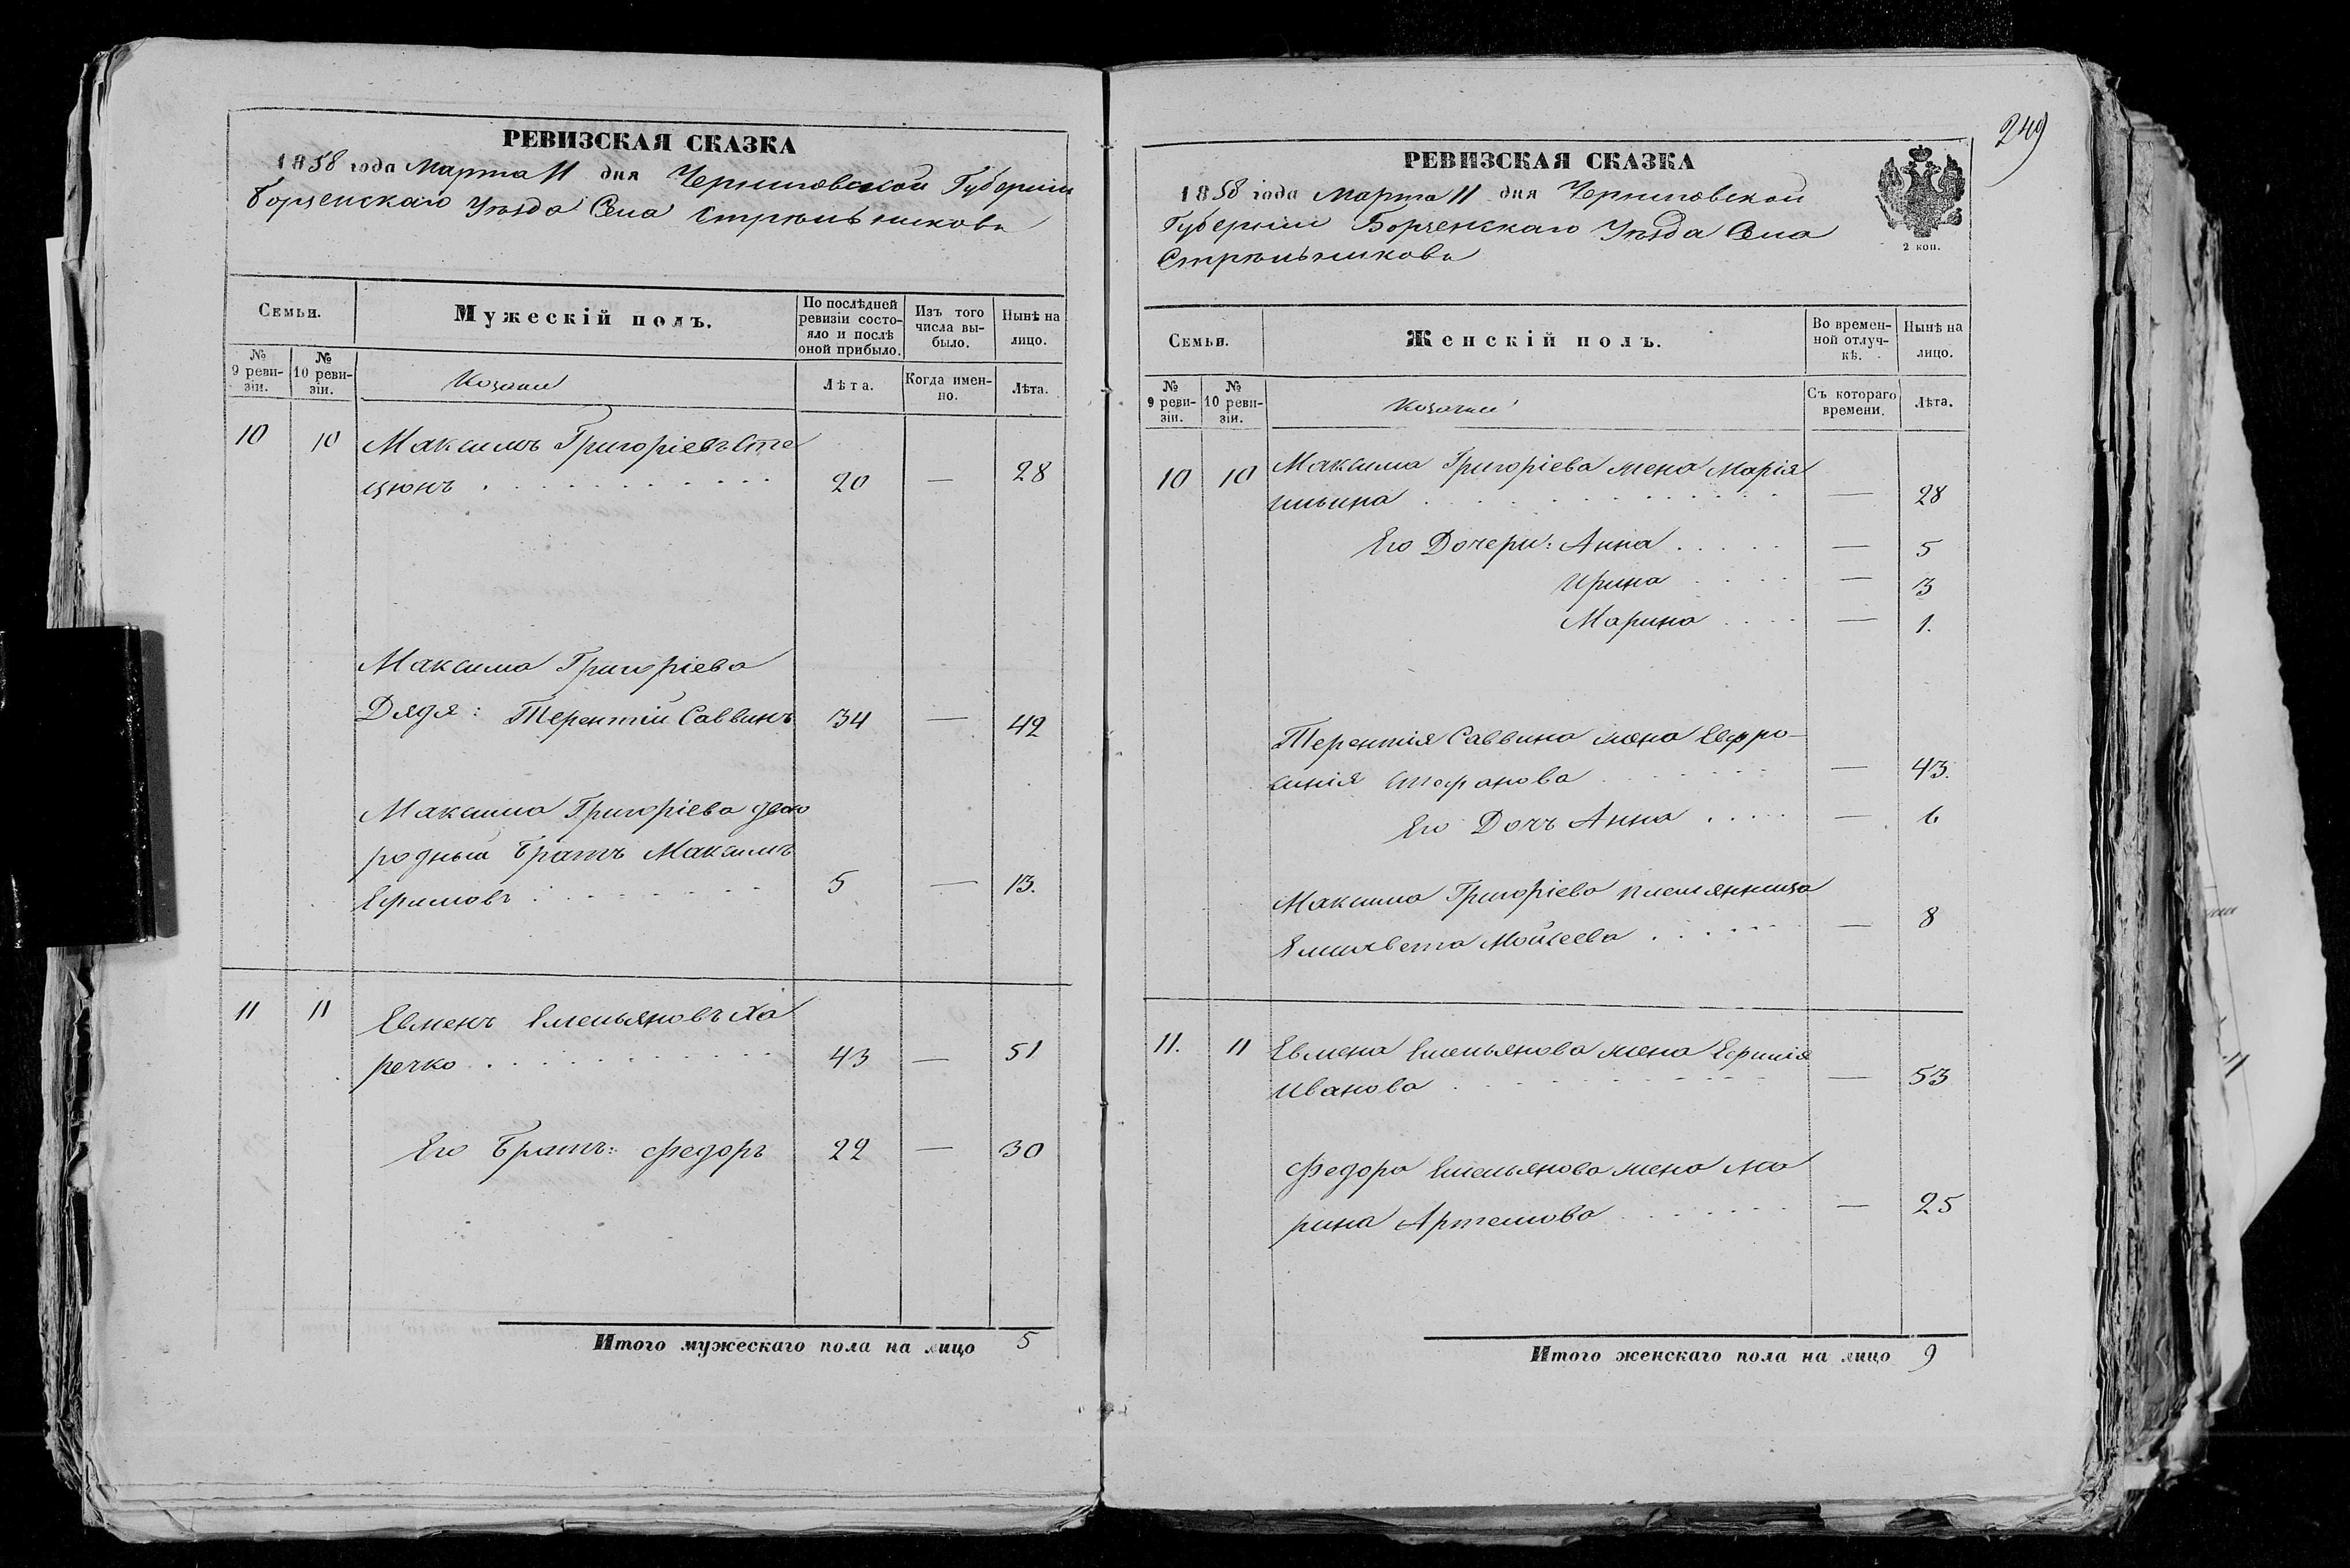 РЕВИЗСКАЯ СКАЗКА
1858 года Марта 11 дня Черниговской Губерніи
Борзенскаго Уѣзда Села Стрѣльникова
Семьи.
Мужескій полъ.
По послѣдней ревизіи состояло и послѣ оной прибыло.
Изъ того числа выбыло.
Нынѣ на лицо.
№ 9 ревизіи.
№ 10 ревизіи.
Козаки
Лѣта.
Когда именно.
Лѣта.
10 10 Максимъ Григоріевъ Сте
цюкъ 20 — 28
Максима Григоріева
Дядя: Терентій Саввинъ 34 — 42
Максима Григоріева двою
родный братъ Максимъ
Ефимовъ 5 — 13.
11 11 Евменъ Емельяновъ Ха
речко 43 — 51
Его Братъ: Федоръ 22 — 30
Итого мужескаго пола на лицо 5
249
РЕВИЗСКАЯ СКАЗКА
1858 года Марта 11 дня Черниговской
Губерніи Борзенскаго Уѣзда Села
Стрѣльникова
2 коп.
Семьи.
Женскій полъ.
Во временной отлучкѣ.
Нынѣ на лицо.
№ 9 ревизіи.
№ 10 ревизіи.
Козачки
Съ котораго времени.
Лѣта.
10 10 Максима Григоріева жена Марія
Ильина — 28
Его Дочери: Анна — 5
Ирина — 3
Марина — 1.
Терентія Саввина жена Евфро-
синія Стефанова — 43.
Его Дочь Анна — 6
Максима Григоріева племянница
Елисавета Мойсеева — 8
11. 11 Евмена Емельянова жена Ефимія
Иванова — 53
Федора Емельянова жена Ма
рина Артемова — 25
Итого женскаго пола на лицо 9